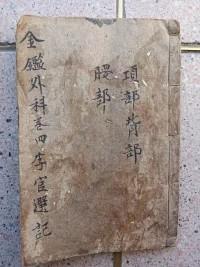 項部背部
腰部
金鑑外科卷四李官選記